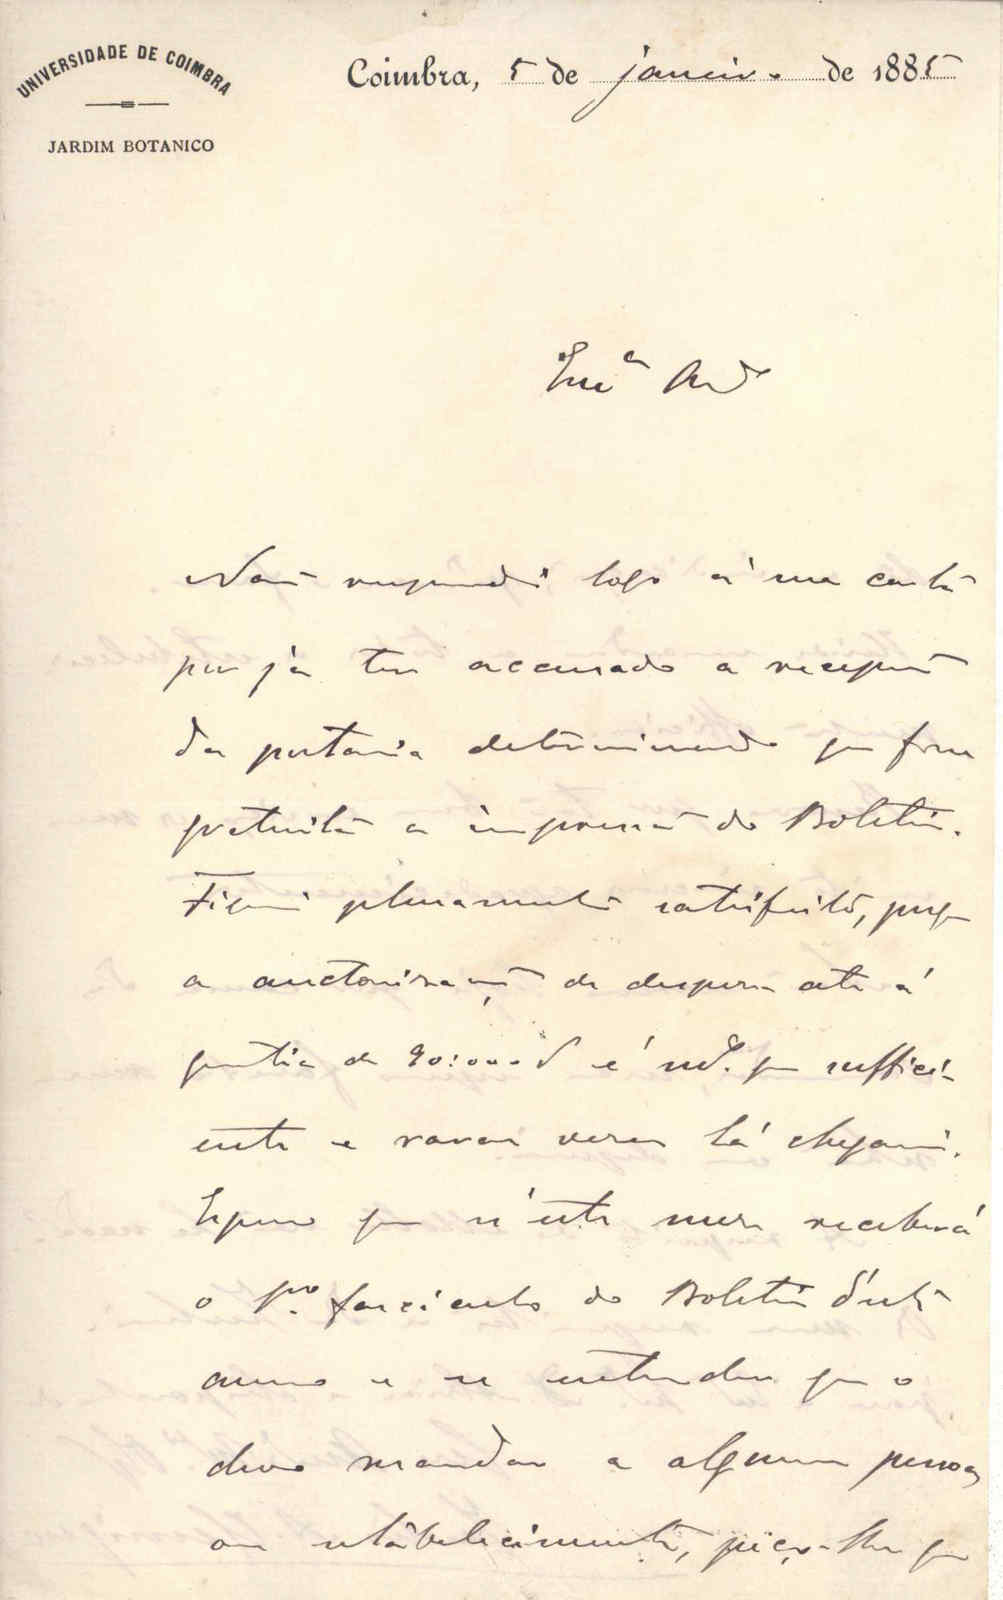 UNIVERSIDADE DE COIMBRA
JARDIM BOTANICO
Coimbra, 5 de janeiro de 1885
Não respondi logo á sua carta
por já ter accusado a recepção
da portaria determinando que fosse
gratuita a impressão do Boletim.
Fiquei plenamente satisfeito, porque
a auctorisação de despesa até á
quantia de 90:000 é que suffici-
ente e raras vezes lá chegarei.
Espero que n'este mez receberá
o 1º fasciculo do Boletim d'este
anno e se entender que o
devo mandar a alguma pessoa
ou estabelecimento, peço-lhe que